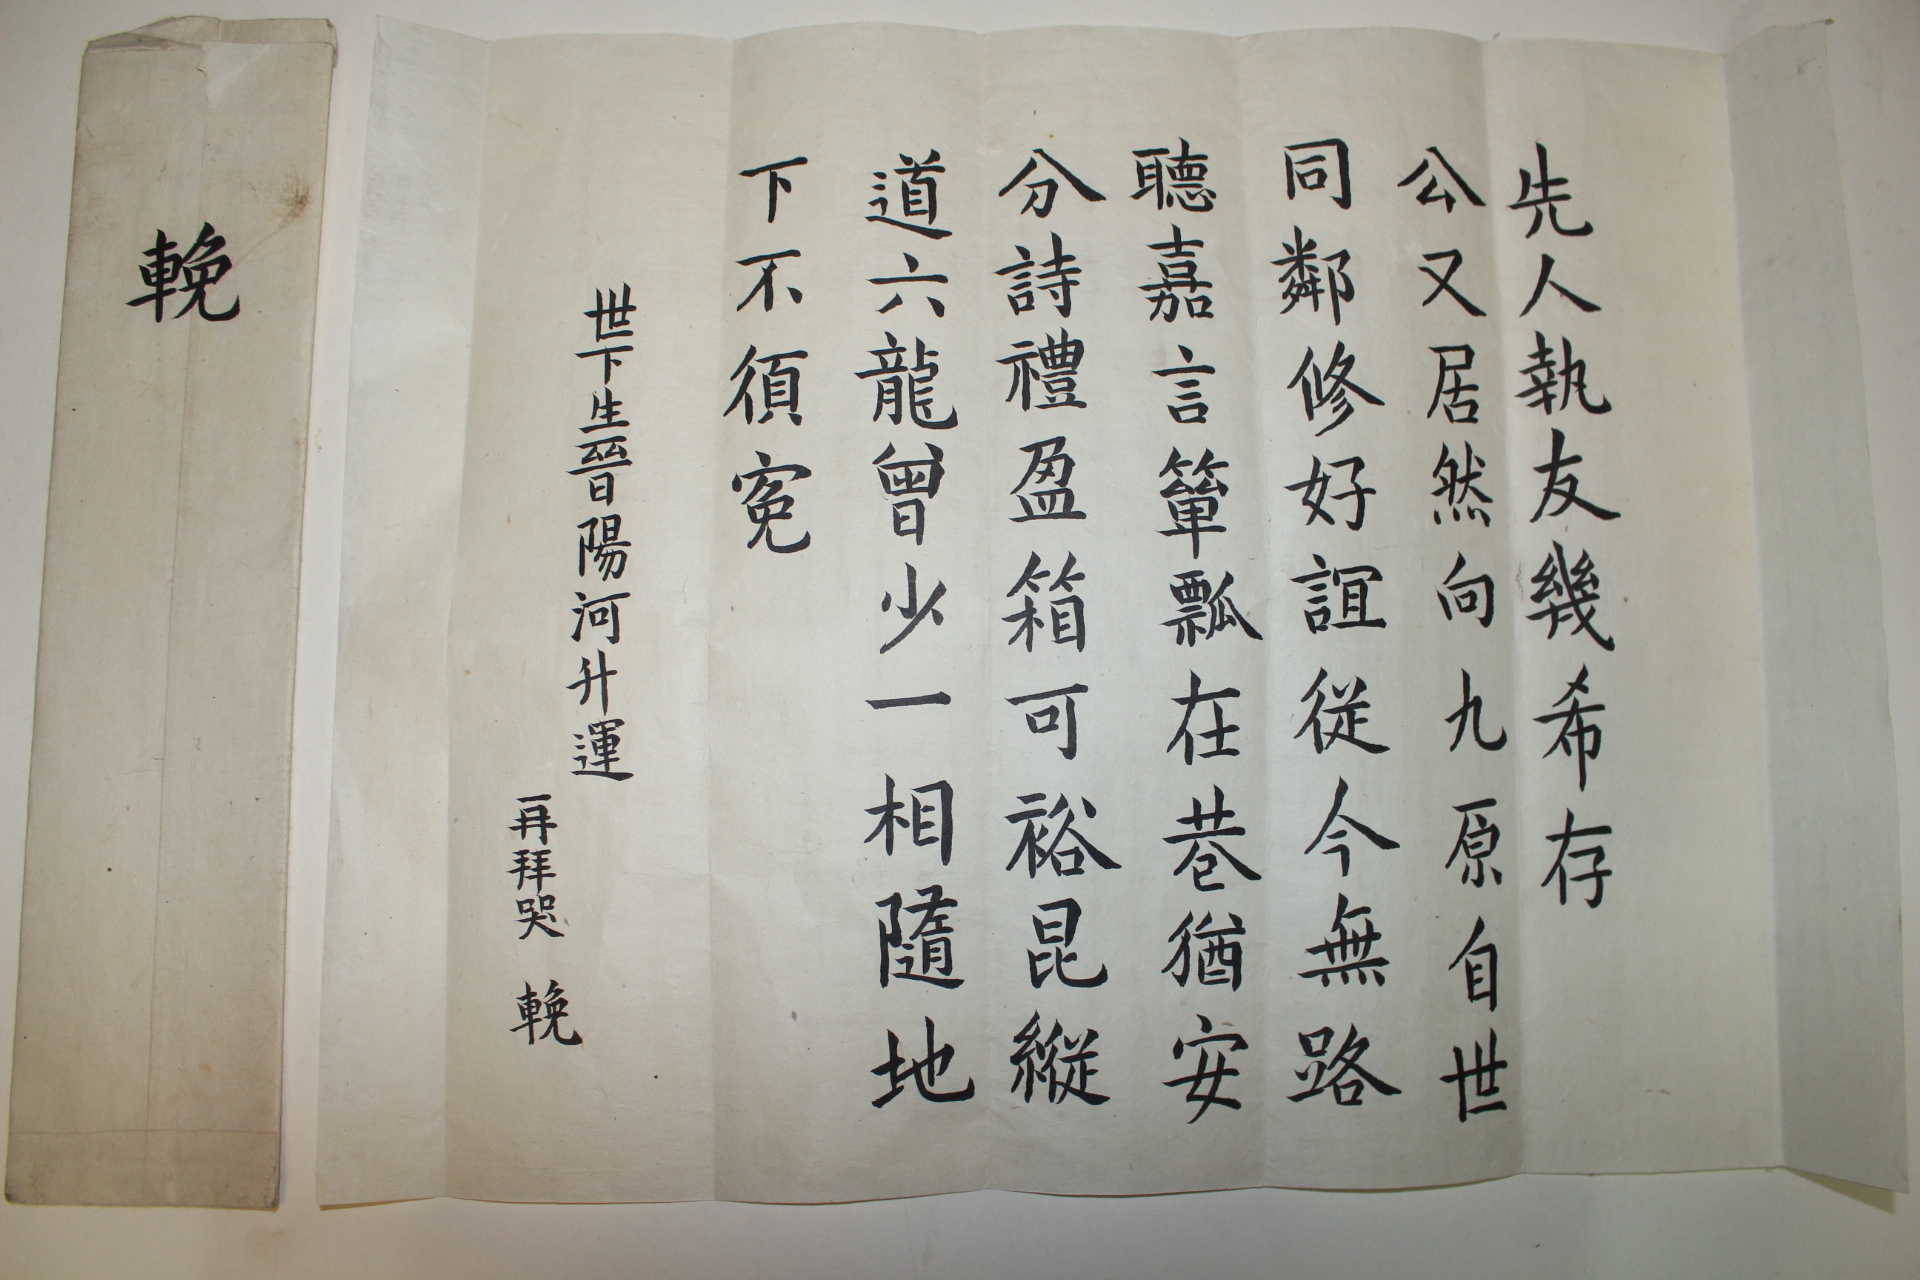 先人執友幾希存
公又居然向九原自世
同鄰修好誼從今無路
聽嘉言簞瓢在巷猶安
分詩禮盈箱可裕昆縱
道六龍曾少一相隨地
下不須寃
世下生晉陽河升運
再拜哭 輓
輓